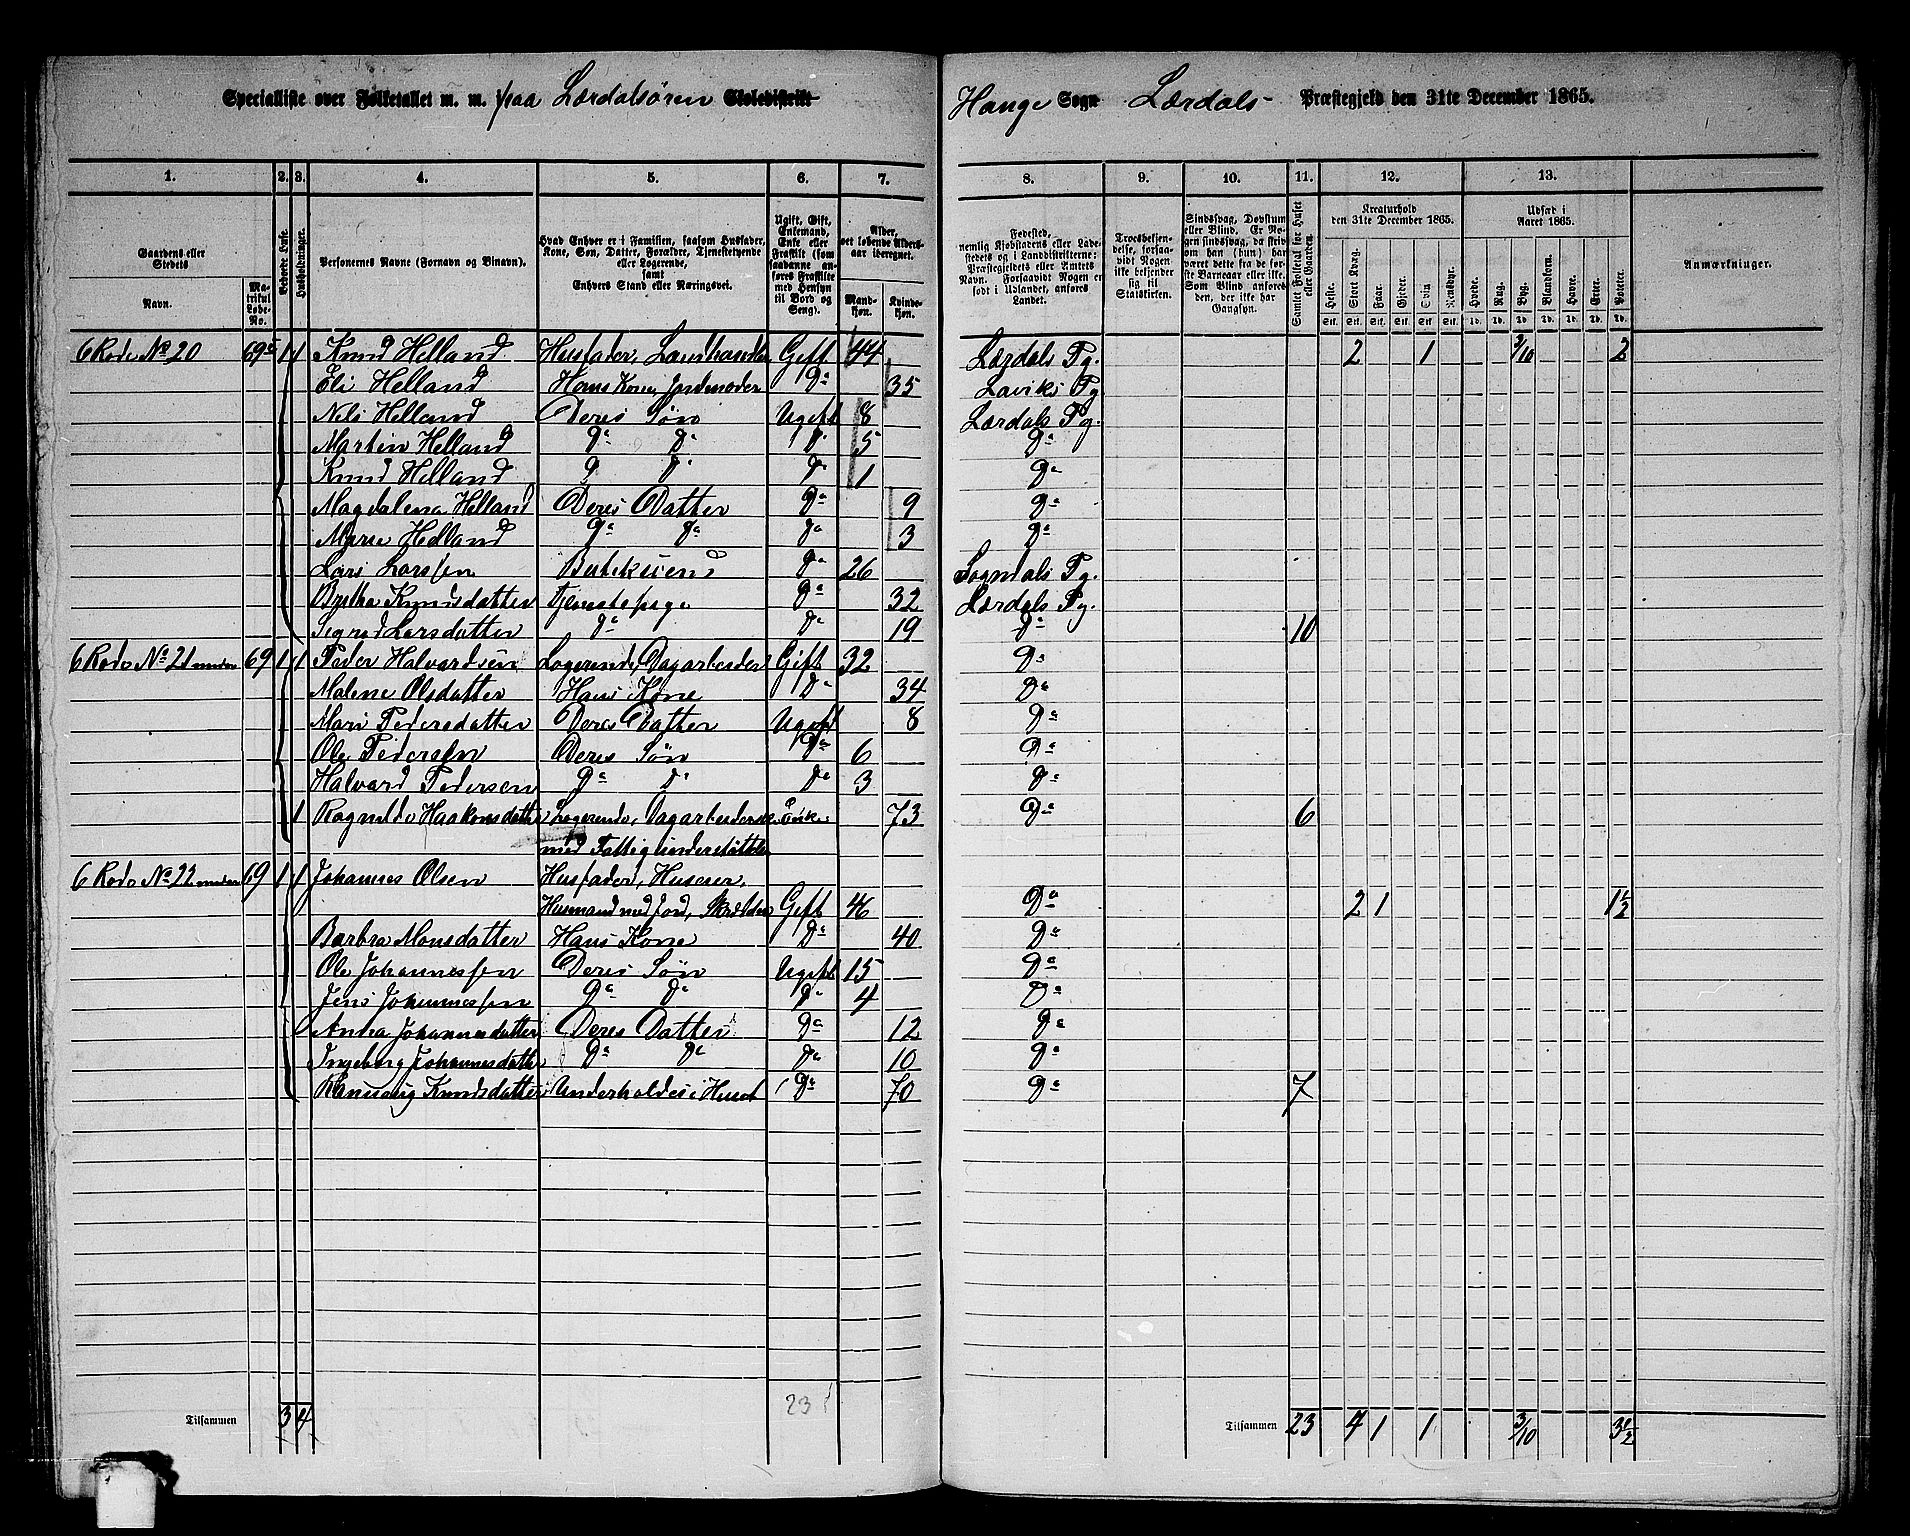 Specialliste over Folketallet m. m. paa Lærdalsøren Skoledistrikt Hauge Sogn Lærdals Præstegjeld den 31te December 1865.
1. 2. 3. 4. 5. 6. 7. 8. 9. 10. 11. 12. 13.
Gaardens eller Stedets
Navn.
Matrikul Løbe-No.
Beboede Huse.
Husholdninger.
Personernes Navne (Fornavn og Binavn).
Hvad Enhver er i Familien, saasom Husfader, Kone, Søn, Datter, Forældre, Tjenestetyende eller Logerende, samt Enhvers Stand eller Næringsvei.
Ugift, Gift, Enkemand, Enke eller Fraskilt (som saadanne anføres Fraskilte med Hensyn til Bord og Seng).
Alder, det løbende Aldersaar iberegnet.
Mandkjøn.
Kvindekjøn.
Fødested, nemlig Kjøbstadens eller Ladestedets og i Landdistrikterne: Præstegjeldets eller Amtets Navn. Forsaavidt Nogen er født i Udlandet, anføres Landet.
Troesbekjendelse, forsaavidt Nogen ikke bekjender sig til Statskirken.
Sindssvag, Døvstum eller Blind. Er Nogen sindssvag, da skrives dette fra de første Barneaar eller ikke. Som Blind anføres den, der ikke har Gangsyn.
Samlet Folketal for Huset eller Gaarden.
Kreaturhold den 31te December 1865.
Heste. Stort Kvæg. Faar. Gjeder. Sviin. Rensdyr.
Udsæd i Aaret 1865.
Hvede. Rug. Byg. Blandkorn. Havre. Erter. Poteter.
Anmærkninger.
6 Rode No 20 69c 1 1 Knud Helland Husfader, Landhandler Gift 44 Lærdals Pg. 2 1 3/10 2
Eli Helland Hans Kone, Jordmoder Do 35 Laviks Pg.
Nils Helland Deres Søn Ugift 8 Lærdals Pg.
Martin Helland Do Do Do 5 Do
Knud Helland Do Do Do 1 Do
Magdalena Helland Deres Datter Do 9 Do
Marie Helland Do Do Do 3 Do
Lars Larssen Butiksvend Do 26 Sogndals Pg.
Brita Knudsdatter Tjenestepige Do 32 Lærdals Pg.
Sigrid Larsdatter Do Do 19 Do 10
6 Rode No 21 69 1 1 Peder Halvardsen Logerende, Dagarbeider Gift 32 Do
Malene Olsdatter Hans Kone Do 34 Do
Mari Pedersdatter Deres Datter Ugift 8 Do
Ole Pedersen Deres Søn Do 6 Do
Halvard Pedersen Do Do Do 3 Do
1 Ragnilde Haakonsdatter Logerende, Dagarbeiderske Enke 73 Do 6
med Fattigunderstøttelse
6 Rode No 22 69 1 1 Johannes Olsen Husfader, Huseier,
Husmand med Jord, Skrædder Gift 46 Do 2 1 1½
Barbra Monsdatter Hans Kone Do 40 Do
Ole Johannessen Deres Søn Ugift 15 Do
Jens Johannessen Do Do Do 4 Do
Anna Johannesdatter Deres Datter Do 12 Do
Ingeborg Johannesdatter Do Do Do 10 Do
Ransaug Knudsdatter Underholdes i Huset Do 70 Do 7
23
Tilsammen 3 4 Tilsammen 23 4 1 1 3/10 3½